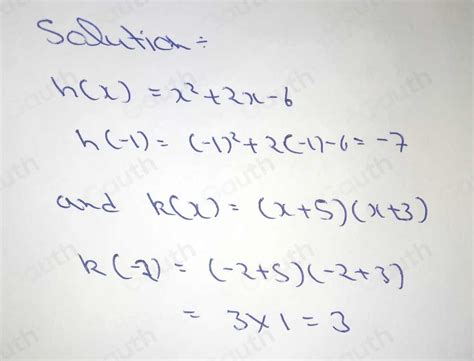 Solution:-
h(x) = x²+2x-6
h(-1) = (-1)²+2(-1)-6 = -7
and k(x) = (x+5)(x+3)
k(-2) = (-2+5)(-2+3)
= 3×1 = 3